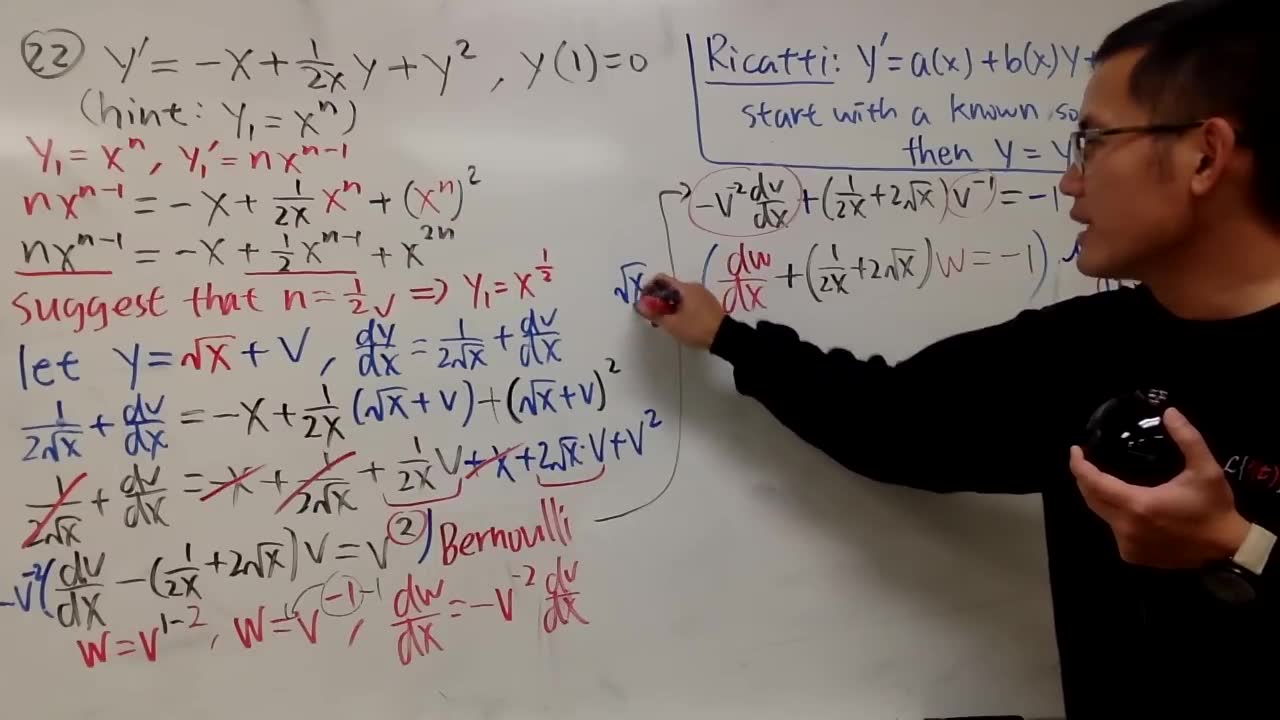 22 y' = -x + 1/2x y + y², y(1)=0
(hint: y₁ = xⁿ)
y₁ = xⁿ, y₁' = nxⁿ⁻¹
nxⁿ⁻¹ = -x + 1/2x xⁿ + (xⁿ)²
nxⁿ⁻¹ = -x + 1/2 xⁿ⁻¹ + x²ⁿ
suggest that n = 1/2 √ ⇒ y₁ = x^1/2
let y = √x + v, dy/dx = 1/2√x + dv/dx
1/2√x + dv/dx = -x + 1/2x (√x + v) + (√x + v)²
1/2√x + dv/dx = -x + 1/2√x + 1/2x v + x + 2√x·v + v²
-v⁻²( dv/dx - (1/2x + 2√x) v = v² ) Bernoulli
w = v¹⁻², w = v⁻¹ -1, dw/dx = -v⁻² dv/dx
Ricatti: y' = a(x) + b(x)y +
start with a known
then y =
-v⁻² dv/dx + (1/2x + 2√x) v⁻¹ = -1
√x ( dw/dx + (1/2x + 2√x) w = -1 )